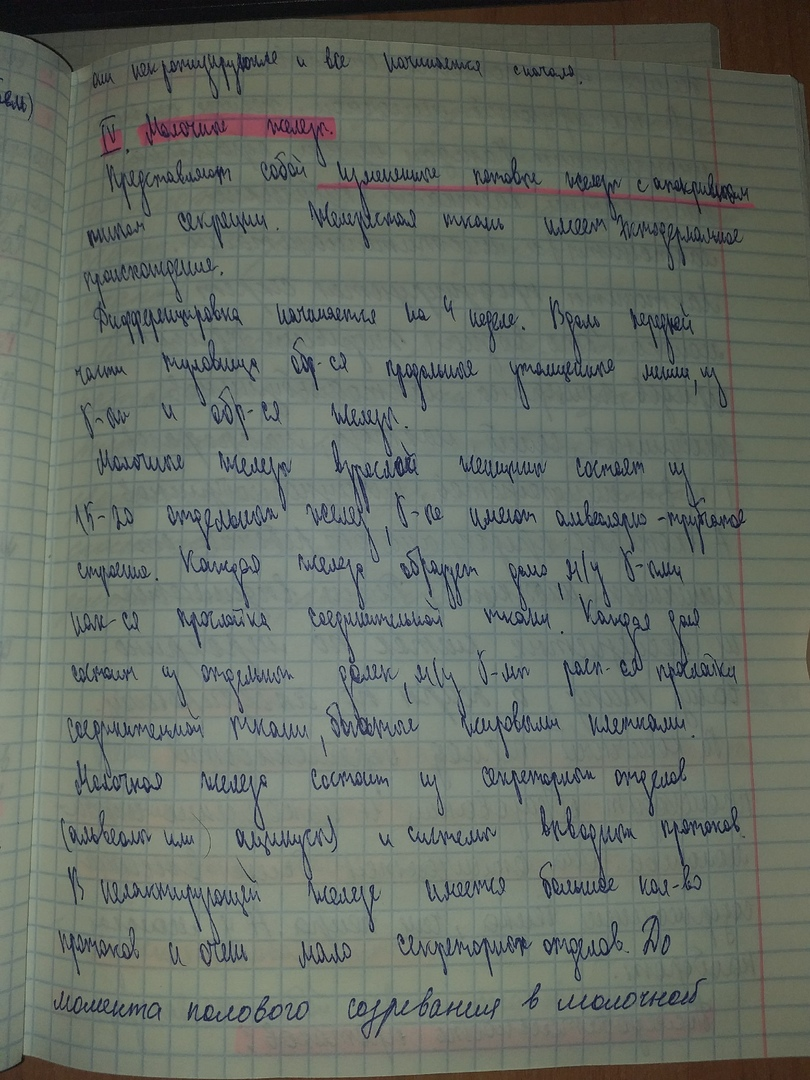 или некротизируются и все начинается сначала.
IV. Молочные железы.
Представляют собой измененные потовые железы с апокриновым
типом секреции. Железистая ткань имеет эктодермальное
происхождение.
Дифференцировка начинается на 4 неделе. Вдоль передней
части туловища обр-ся продольные утолщенные линии, из
к-ых и обр-ся железы.
Молочные железы взрослой женщины состоят из
15-20 отдельных желез, к-ые имеют альвеолярно-трубчатое
строение. Каждая железа образует долю, м/у к-ми
нах-ся прослойка соединительной ткани. Каждая доля
состоит из отдельных долек, м/у к-ми расп-ся прослойки
соединительной ткани, богатые жировыми клетками.
Молочная железа состоит из секреторных отделов
(альвеолы или) ацинусы) и системы выводных протоков.
В нелактирующей железе имеется большое кол-во
протоков и очень мало секреторных отделов. До
момента полового созревания в молочной